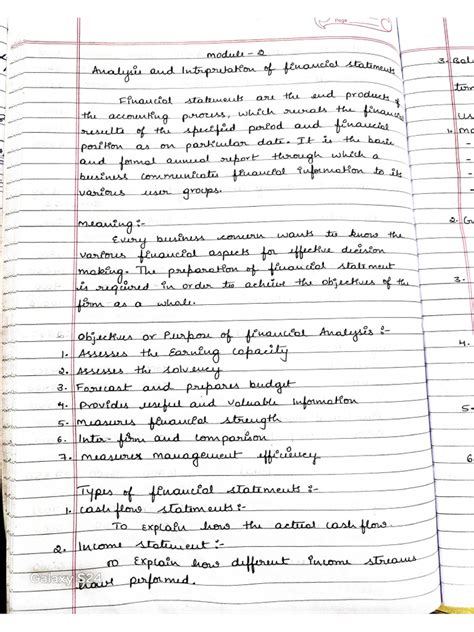 Page
module - 2
Analysis and Intrpretation of financial statements
Financial statements are the end products of
the accounting process, which reveals the financial
results of the specified period and financial
position as on particular date. It is the basic
and formal annual report through which a
business communicates financial information to its
various user groups.
meaning :-
Every business concern wants to know the
various financial aspects for effective decision
making. The preparation of financial statement
is required in order to achieve the objectives of the
firm as a whole.
Objectives or Purpose of financial Analysis :-
1. Assesses the Earning capacity
2. Assesses the solvency
3. Forecast and prepares budget
4. Provides useful and valuable Information
5. Measures financial strength
6. Inter-firm and comparison
7. Measures management efficiency
Types of financial statements :-
1. Cash flow statements :-
To Explain how the actual cash flow.
2. Income statement :-
To Explain how different income streams
have performed.
Galaxy S24
3. Bal
2. G
3.
4.
5.
6